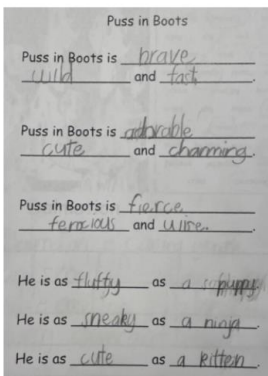 Puss in Boots
Puss in Boots is brave
wild and fast.
Puss in Boots is adorable
cute and charming.
Puss in Boots is fierce
ferocious and .
He is as fluffy as a puppy
He is as sneaky as a ninja.
He is as cute as a kitten.